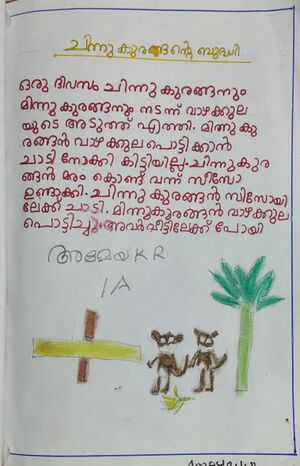 ചിന്നു കുരങ്ങന്റെ ബുദ്ധി
ഒരു ദിവസം ചിന്നു കുരങ്ങനും
മിന്നു കുരങ്ങനും നടന്ന് വാഴക്കുല
യുടെ അടുത്ത് എത്തി. മിന്നു കു
രങ്ങൻ വാഴക്കുല പൊട്ടിക്കാൻ
ചാടി നോക്കി കിട്ടിയില്ല. ചിന്നുകുര
ങ്ങൻ മരം കൊണ്ട് വന്ന് സീസോ
ഉണ്ടാക്കി. ചിന്നു കുരങ്ങൻ സിസോയി
ലേക്ക് ചാടി. മിന്നുകുരങ്ങൻ വാഴക്കുല
പൊട്ടിച്ചു. അവർ വീട്ടിലേക്ക് പോയി
അമേയ K R
1A